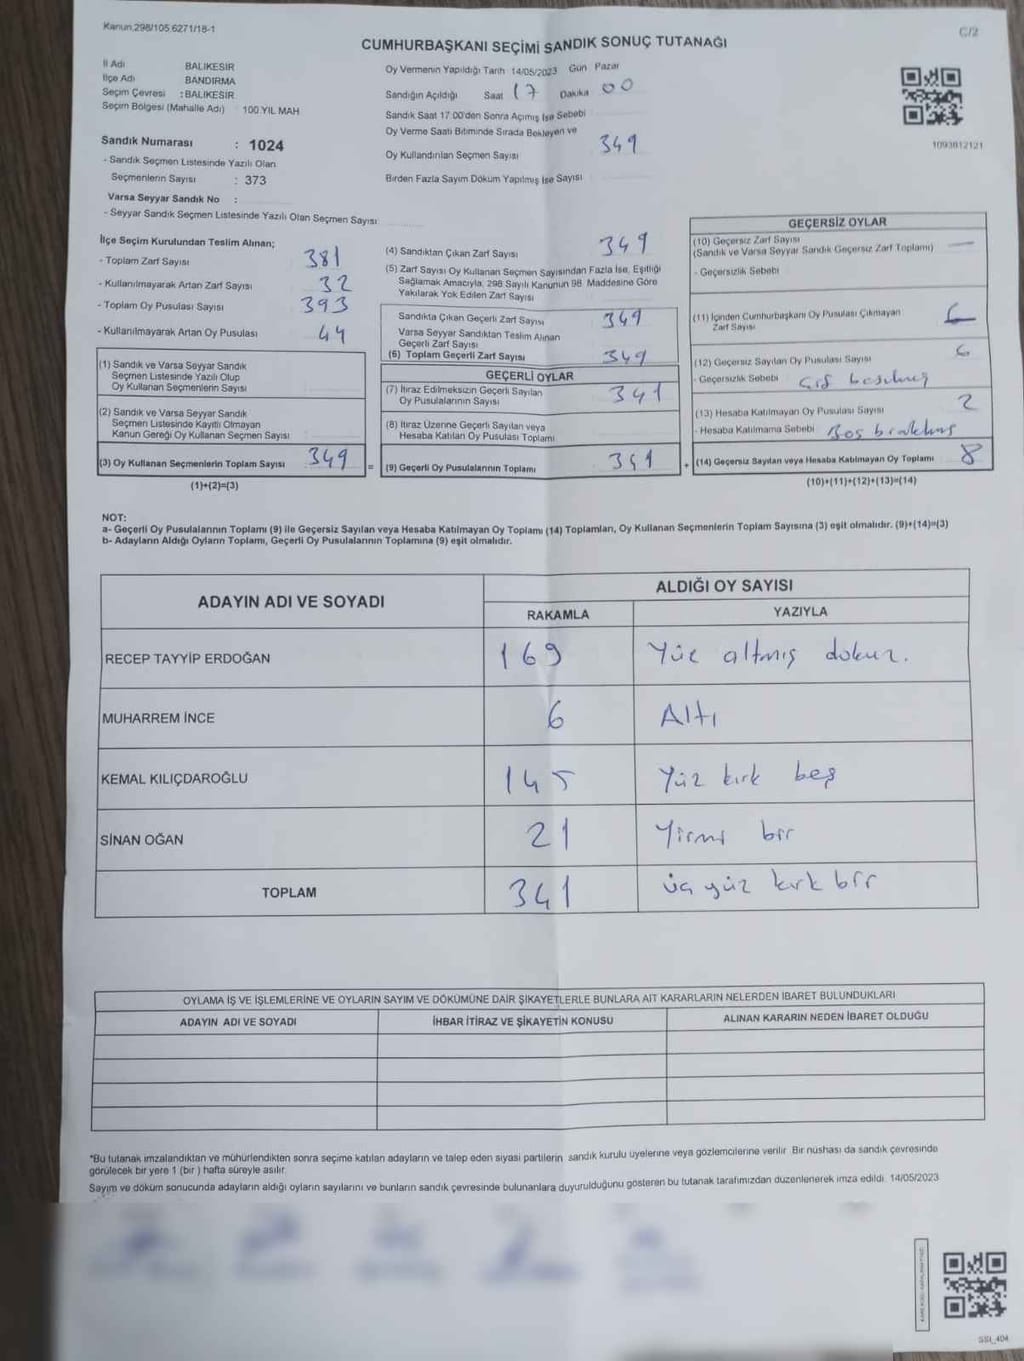 Kanun,298/105,6271/18-1
C/2
CUMHURBAŞKANI SEÇİMİ SANDIK SONUÇ TUTANAĞI
İl Adı BALIKESİR
İlçe Adı BANDIRMA
Seçim Çevresi : BALIKESİR
Seçim Bölgesi (Mahalle Adı) 100 YIL MAH
Sandık Numarası : 1024
- Sandık Seçmen Listesinde Yazılı Olan
Seçmenlerin Sayısı : 373
Varsa Seyyar Sandık No :
- Seyyar Sandık Seçmen Listesinde Yazılı Olan Seçmen Sayısı
Oy Vermenin Yapıldığı Tarih 14/05/2023 Gün Pazar
Sandığın Açıldığı Saat 17 Dakika 00
Sandık Saat 17 00'den Sonra Açılmış İse Sebebi
Oy Verme Saati Bitiminde Sırada Bekleyen ve
Oy Kullandırılan Seçmen Sayısı 349
Birden Fazla Sayım Döküm Yapılmış İse Sayısı
1093812121
İlçe Seçim Kurulundan Teslim Alınan;
- Toplam Zarf Sayısı 381
- Kullanılmayarak Artan Zarf Sayısı 32
- Toplam Oy Pusulası Sayısı 393
- Kullanılmayarak Artan Oy Pusulası 44
(1) Sandık ve Varsa Seyyar Sandık
Seçmen Listesinde Yazılı Olup
Oy Kullanan Seçmenlerin Sayısı
(2) Sandık ve Varsa Seyyar Sandık
Seçmen Listesinde Kayıtlı Olmayan
Kanun Gereği Oy Kullanan Seçmen Sayısı
(3) Oy Kullanan Seçmenlerin Toplam Sayısı 349
(1)+(2)=(3)
=
(4) Sandıktan Çıkan Zarf Sayısı 349
(5) Zarf Sayısı Oy Kullanan Seçmen Sayısından Fazla İse, Eşitliği
Sağlamak Amacıyla, 298 Sayılı Kanunun 98. Maddesine Göre
Yakılarak Yok Edilen Zarf Sayısı
Sandıkta Çıkan Geçerli Zarf Sayısı 349
Varsa Seyyar Sandıktan Teslim Alınan
Geçerli Zarf Sayısı
(6) Toplam Geçerli Zarf Sayısı 349
GEÇERLİ OYLAR
(7) İtiraz Edilmeksizin Geçerli Sayılan
Oy Pusulalarının Sayısı 341
(8) İtiraz Üzerine Geçerli Sayılan veya
Hesaba Katılan Oy Pusulası Toplamı
(9) Geçerli Oy Pusulalarının Toplamı 341
+
GEÇERSİZ OYLAR
(10) Geçersiz Zarf Sayısı —
(Sandık ve Varsa Seyyar Sandık Geçersiz Zarf Toplamı)
- Geçersizlik Sebebi
(11) İçinden Cumhurbaşkanı Oy Pusulası Çıkmayan
Zarf Sayısı
(12) Geçersiz Sayılan Oy Pusulası Sayısı 6
- Geçersizlik Sebebi Çift basılmış
(13) Hesaba Katılmayan Oy Pusulası Sayısı 2
- Hesaba Katılmama Sebebi Boş bırakılmış
(14) Geçersiz Sayılan veya Hesaba Katılmayan Oy Toplamı 8
(10)+(11)+(12)+(13)=(14)
NOT:
a- Geçerli Oy Pusulalarının Toplamı (9) ile Geçersiz Sayılan veya Hesaba Katılmayan Oy Toplamı (14) Toplamları, Oy Kullanan Seçmenlerin Toplam Sayısına (3) eşit olmalıdır. (9)+(14)=(3)
b- Adayların Aldığı Oyların Toplamı, Geçerli Oy Pusulalarının Toplamına (9) eşit olmalıdır.
ADAYIN ADI VE SOYADI ALDIĞI OY SAYISI
RAKAMLA YAZIYLA
RECEP TAYYİP ERDOĞAN 169 Yüz altmış dokuz.
MUHARREM İNCE 6 Altı
KEMAL KILIÇDAROĞLU 145 Yüz kırk beş
SİNAN OĞAN 21 Yirmi bir
TOPLAM 341 üç yüz kırk bir
OYLAMA İŞ VE İŞLEMLERİNE VE OYLARIN SAYIM VE DÖKÜMÜNE DAİR ŞİKAYETLERLE BUNLARA AİT KARARLARIN NELERDEN İBARET BULUNDUKLARI
ADAYIN ADI VE SOYADI İHBAR İTİRAZ VE ŞİKAYETİN KONUSU ALINAN KARARIN NEDEN İBARET OLDUĞU
*Bu tutanak imzalandıktan ve mühürlendikten sonra seçime katılan adayların ve talep eden siyasi partilerin sandık kurulu üyelerine veya gözlemcilerine verilir. Bir nüshası da sandık çevresinde
görülecek bir yere 1 (bir ) hafta süreyle asılır.
Sayım ve döküm sonucunda adayların aldığı oyların sayılarını ve bunların sandık çevresinde bulunanlara duyurulduğunu gösteren bu tutanak tarafımızdan düzenlenerek imza edildi. 14/05/2023